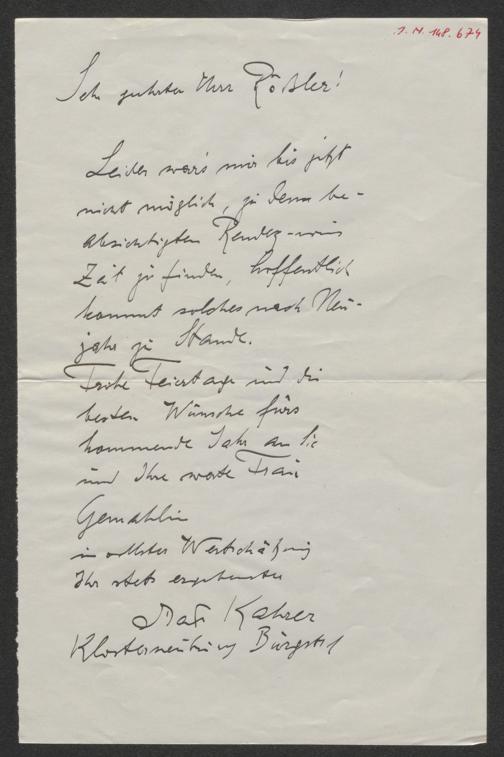 I. N. 148.674
Sehr geehrter Herr Rößler!
Leider war's mir bis jetzt
nicht möglich, zu dem be-
absichtigten Rendez-vous
Zeit zu finden, hoffentlich
kommt solches nach Neu-
jahr zu Stande.
Frohe Feiertage und die
besten Wünsche fürs
kommende Jahr an Sie
und Ihre werte Frau
Gemahlin
in vollster Wertschätzung
Ihr stets ergebenster
Max Kahrer
Klosterneuburg